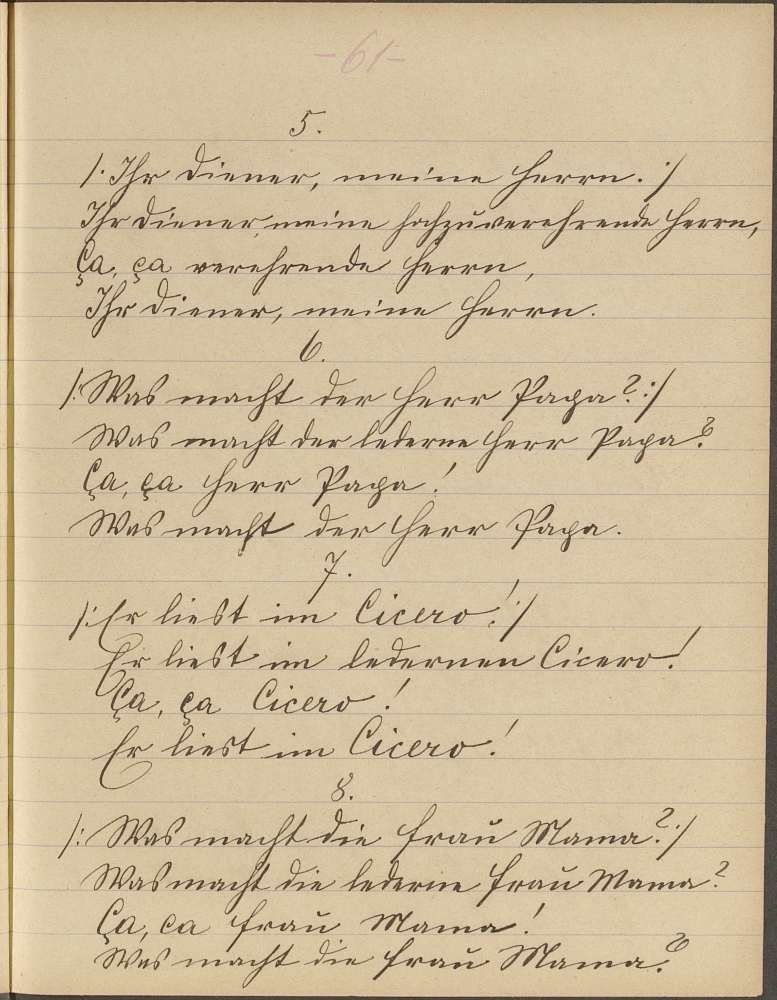 -61-
5.
/: Ihr Diener, meine Herrn. :/
Ihr Diener, meine hochzuverehrende Herrn,
Ça, ça verehrende Herrn,
Ihr Diener, meine Herrn.
6.
/: Was macht der Herr Papa? :/
Was macht der lederne Herr Papa?
Ça, ça Herr Papa!
Was macht der Herr Papa.
7.
/: Er liest im Cicero! :/
Er liest im ledernen Cicero!
Ça, ça Cicero!
Er liest im Cicero!
8.
/: Was macht die Frau Mama? :/
Was macht die lederne Frau Mama?
Ça, ca Frau Mama!
Was macht die Frau Mama?